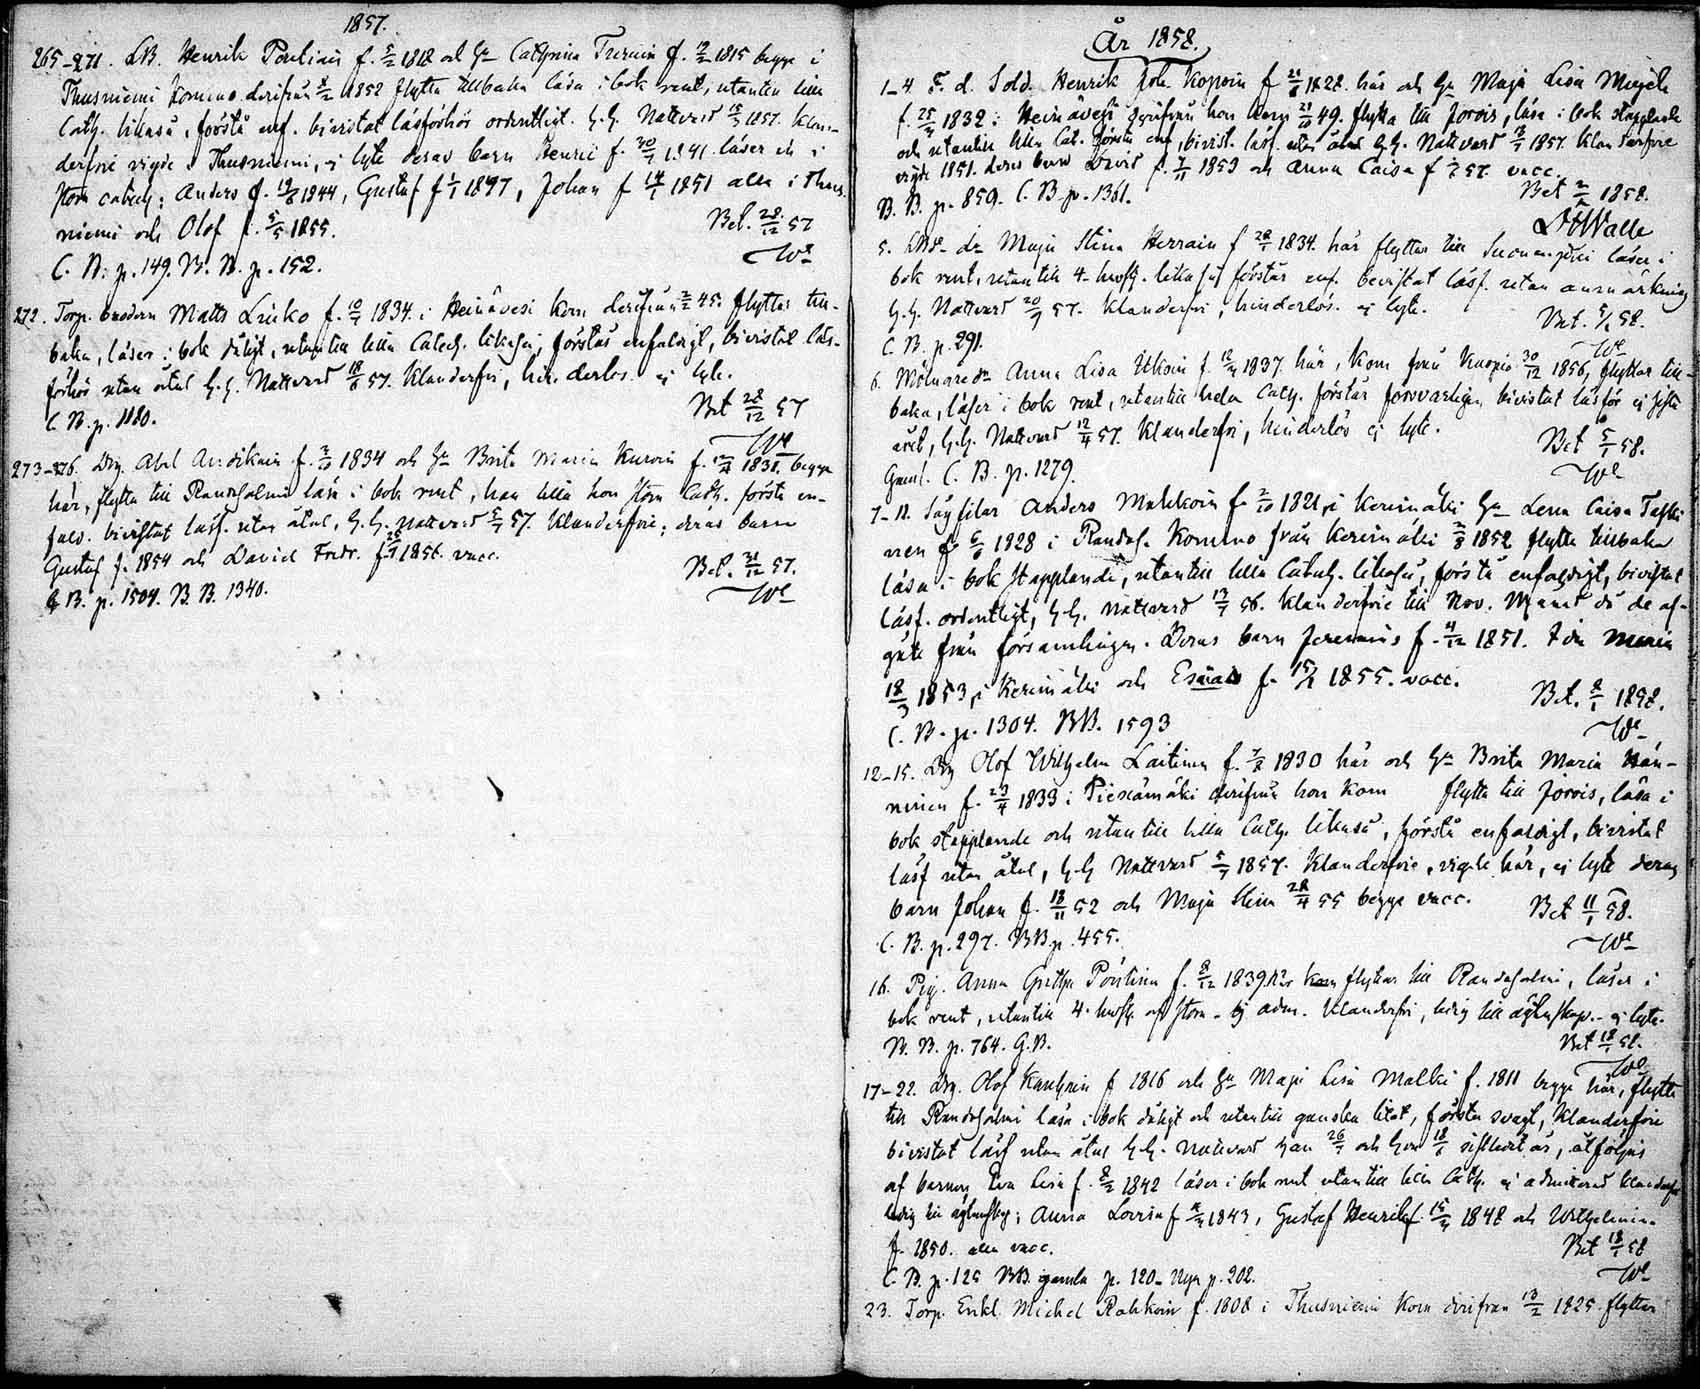 1857.
265-271. LB. Henrik Poutiain f. 5/2 1818 och Hu Cathrina Turuin f. 12/2 1815 begge i
Thusniemi komna derifrån 1852 flytta tillbaka läsa i bok rent, utantill lilla
Cath. likaså, förstå enf. bivistat läsförhör ordentligt. H.H. Nattvard 1857. klan-
derfrie vigde i Thusniemi, ej lyte deras barn Henric f. 30/7 1841 läser in i
stora catech; Anders f. 1844, Gustaf f. 1847, Johan f. 1851 alla i Thus-
niemi och Olof f. 5/5 1855.
Bet. 28/12 57
We
C. B. p. 149. B. B. p. 152.
272. Torp. brodern Matts Linko f. 10/7 1834 i Heinävesi kom derifrån 45. flyttar till-
baka, läser i bok dåligt, utantill lilla Catech. likaså, förstår enfaldigt, bivistat läs-
förhör utan åtal H.H. Nattvard 18/6 57. Klanderfri, hinderlös ej lyte.
Bet 28/12 57
We
C B. p. 1180.
273-276. Drg. Abel Andikain f. 1834 och Hu Brita Maria Kurvin f. 1831. begge
här, flytta till Randasalmi läsa i bok rent, han lilla hon stora Cath. förstå en-
fald. bivistat läsf. utan åtal, H.H. Nattvard 57. Klanderfrie; deras barn
Gustaf f. 1854 och David Fredr. f. 1856. vacc.
Bet. 31/12 57.
We
C B. p. 1504. B. B. 1340.
År 1858.
1-4 F. d. Sold. Henrik Joh. Kopoin f. 21/6 1828. här och Hu Maja Lisa
f. 25/3 1832 i Heinävesi derifrån hon kom 21/10 49. flytta till Jorois, läsa i bok stapplande
och utantill lilla Cat. förstå enf. bivist. läsf. utan åtal H.H. Nattvard 1857. Klanderfrie
vigde 1851. deras barn David f. 1853 och Anna Caisa f. 57. vacc.
Bet 2/1 1858.
B. B. p. 859. C. B. p. 1361.
Walle
5. dr Maja Stina Herrain f. 28/1 1834. här flyttar till läser i
bok rent, utantill 4 hufst. likaså förstår enf. bevistat läsf. utan anmärkning
H.H. Nattvard 20/9 57. Klanderfri, hinderlös. ej lyte.
Bet. 5/1 58.
We
C. B. p. 291.
6. Mölnare dr Anna Lisa Ukoin f. 12/4 1837 här, kom från Kuopio 30/12 1856, flyttar till-
baka, läser i bok rent, utantill hela Cath. förstår försvarligen, bivistat läsför ej sista
året, H.H. Nattvard 12/4 57. Klanderfri, hinderlös ej lyte.
Bet 5/1 58.
We
Gaml. C. B. p. 1279.
7-11. Sågfilar Anders Muhkoin f. 2/10 1821 i Kerimäki Hu Lena Caisa Taski-
nen f. 6/6 1828 i Randas. Komna från Kerimäki 1852 flytta tillbaka
läsa i bok stapplande, utantill lilla Catech. likaså, förstå enfaldigt, bivistat
läsf. ordentligt, H.H. Nattvard 13/7 56. Klanderfrie till Nov. Månad då de af-
gåtte från församlingen. Deras barn Jeremias f. 4/12 1851. Ida Maria
18/3 1853 i Kerimäki och Esaias f. 15/2 1855. vacc.
Bet. 8/1 1858.
We
C. B. p. 1304. BB. 1593
12-15. Drg Olof Wilhelm Laitinen f. 7/8 1830 här och Hu Brita Maria Hän-
ninen f. 23/4 1833 i Piexämäki derifrån hon kom flytta till Jorois, läsa i
bok stapplande och utantill lilla Cath. likaså, förstå enfaldigt, bivistat
läsf utan åtal, H.H Nattvard 5/7 1857. Klanderfrie, vigde här, ej lyte deras
barn Johan f. 18/11 52 och Maja Stina 28/4 55 begge vacc.
Bet 11/1 58.
We
C. B. p. 297. BB p. 455.
16. Pig. Anna Gretha Pöntinen f. 8/12 1839 här kom flyttar till Randasalmi, läser i
bok rent, utantill 4 hufst af stora - Ej adm. Klanderfri, ledig till äktenskap. - ej lyte.
Bet 18/1 58.
We
B. B. p. 764. G.B.
17-22. Drg. Olof Kauhain f. 1816 och Hu Maja Lisa Malki f. 1811 begge här, flytta
till Randasalmi läsa i bok dåligt och utantill ganska litet, förstå svagt, Klanderfrie
bivistat läsf utan åtal H.H. Nattvard han 26/7 och hon 18/6 sistledit år, åtföljas
af barnen Eva Lisa f. 8/2 1842 läser i bok rent utantill lilla Cath. ej admitterad klanderfri
ledig till äktenskap; Anna Lovisa f 1843, Gustaf Henrik f. 15/4 1848 och Wilhelmina
f. 1850. alla vacc.
Bet 18/1 58
We
C. B. p. 125 BB. gamla p. 120 - nya p. 202.
23. Torp. Enkl. Michel Rahkoin f. 1808 i Thusniemi kom derifrån 13/2 1825. flyttar